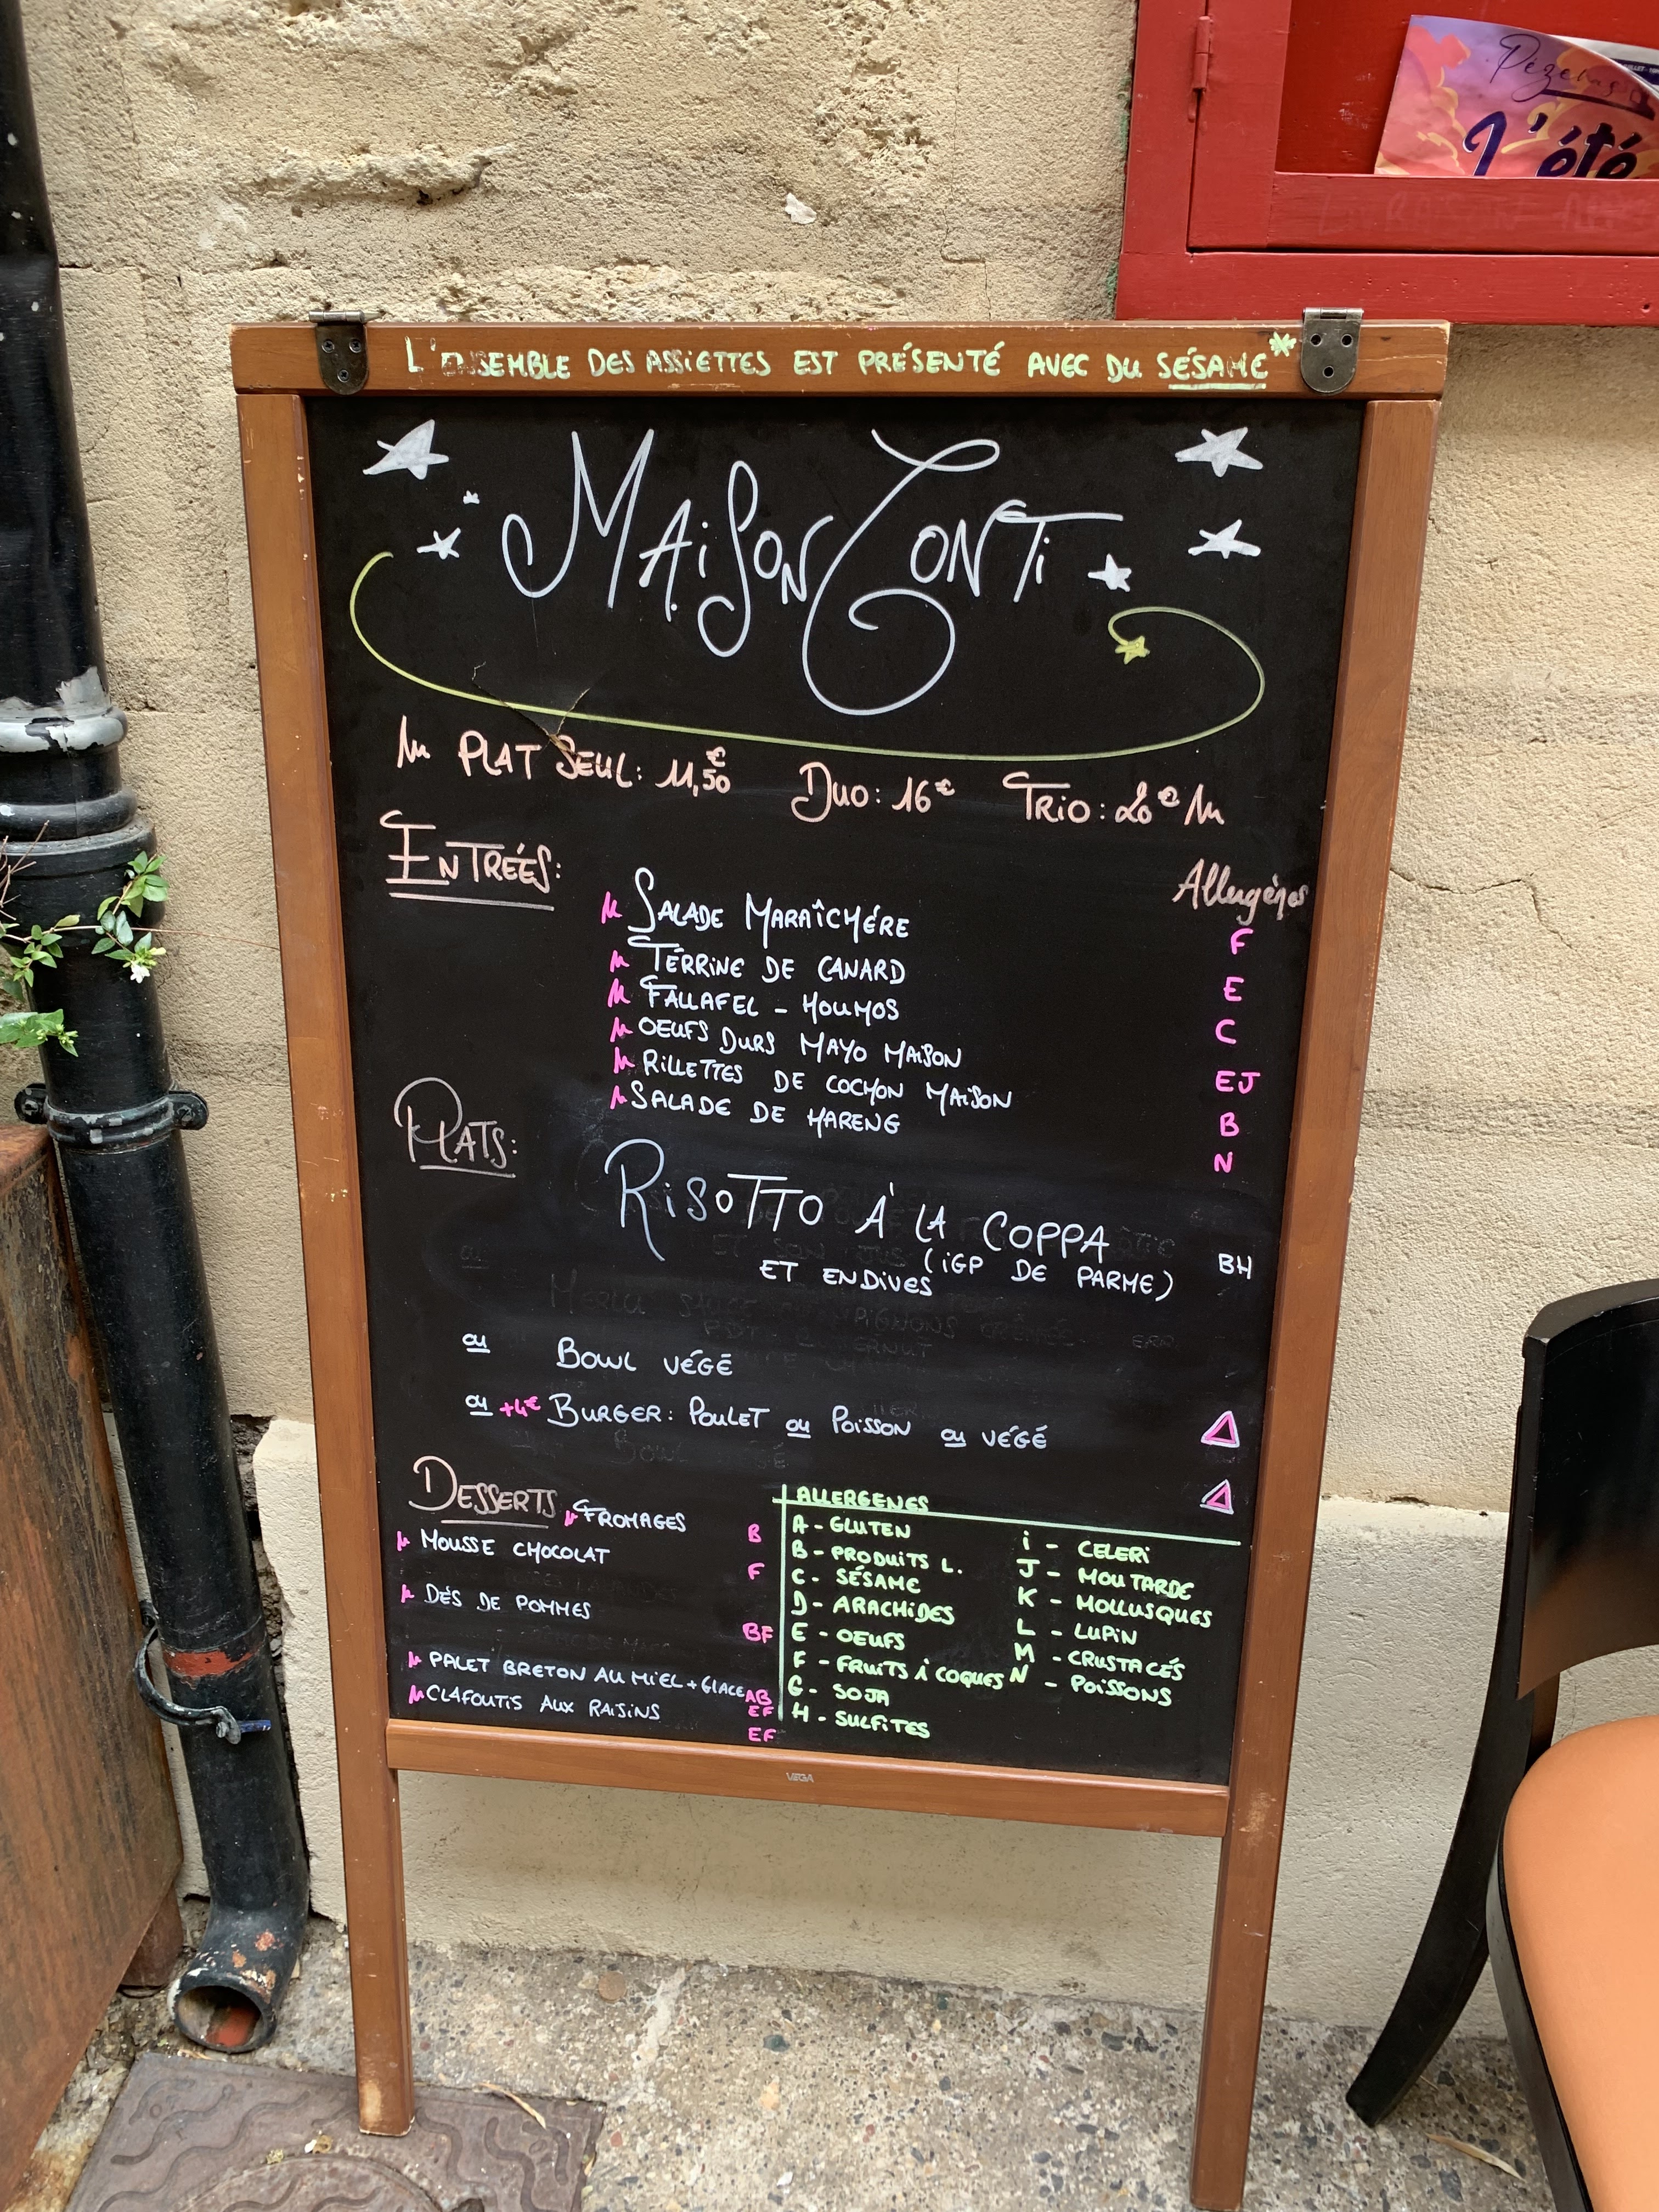 Pézenas
L'été
L'ENSEMBLE DES ASSIETTES EST PRÉSENTÉ AVEC DU SÉSAME*
MAISON CONTI
PLAT SEUL: 11,50€ DUO: 16€ TRIO: 20€
ENTRÉES:
Allergènes
SALADE MARAÎCHÉRE F
TÉRRINE DE CANARD E
FALLAFEL - HOUMOS C
OEUFS DURS MAYO MAISON EJ
RILLETTES DE COCHON MAISON B
SALADE DE HARENG N
PLATS:
RISOTTO À LA COPPA
(IGP DE PARME) BH
ET ENDIVES
ou BOWL VÉGÉ
ou +4€ BURGER: POULET ou POISSON ou VÉGÉ
DESSERTS
FROMAGES B
MOUSSE CHOCOLAT F
DÉS DE POMMES BF
PALET BRETON AU MIEL + GLACE AB
EF
CLAFOUTIS AUX RAISINS EF
ALLERGENES
A - GLUTEN
B - PRODUITS L.
C - SÉSAME
D - ARACHIDES
E - OEUFS
F - FRUITS À COQUES
G - SOJA
H - SULFITES
i - CELERI
J - MOUTARDE
K - MOLLUSQUES
L - LUPIN
M - CRUSTACÉS
N - POISSONS
VEGA